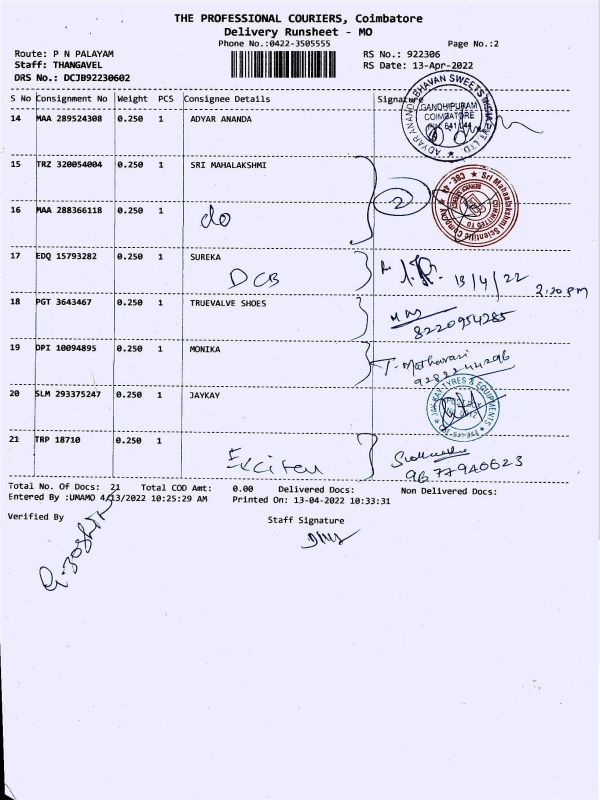 THE PROFESSIONAL COURIERS, Coimbatore
Delivery Runsheet - MO
Phone No.:0422-3505555
Page No.:2
Route: P N PALAYAM
RS No.: 922306
Staff: THANGAVEL
RS Date: 13-Apr-2022
DRS No.: DCJB92230602
S No Consignment No Weight PCS Consignee Details Signature
14 MAA 289524308 0.250 1 ADYAR ANANDA
ADYAR ANANDA BHAVAN SWEETS
GANDHIPURAM
COIMBATORE
15 TRZ 320054004 0.250 1 SRI MAHALAKSHMI
2
Sri Mahaalakshmi Scientific Company
CBE - 44
COMMITTED TO
16 MAA 288366118 0.250 1 do
17 EDQ 15793282 0.250 1 SUREKA
DCB
13/4/22
2:30 PM
18 PGT 3643467 0.250 1 TRUEVALVE SHOES
8220954285
19 DPI 10094895 0.250 1 MONIKA
20 SLM 293375247 0.250 1 JAYKAY
JAY KAY TYRES & EQUIPMENTS
21 TRP 18710 0.250 1
9677940623
Total No. Of Docs: 21 Total COD Amt: 0.00 Delivered Docs: Non Delivered Docs:
Entered By :UMAMO 4/13/2022 10:25:29 AM Printed On: 13-04-2022 10:33:31
Verified By
Staff Signature